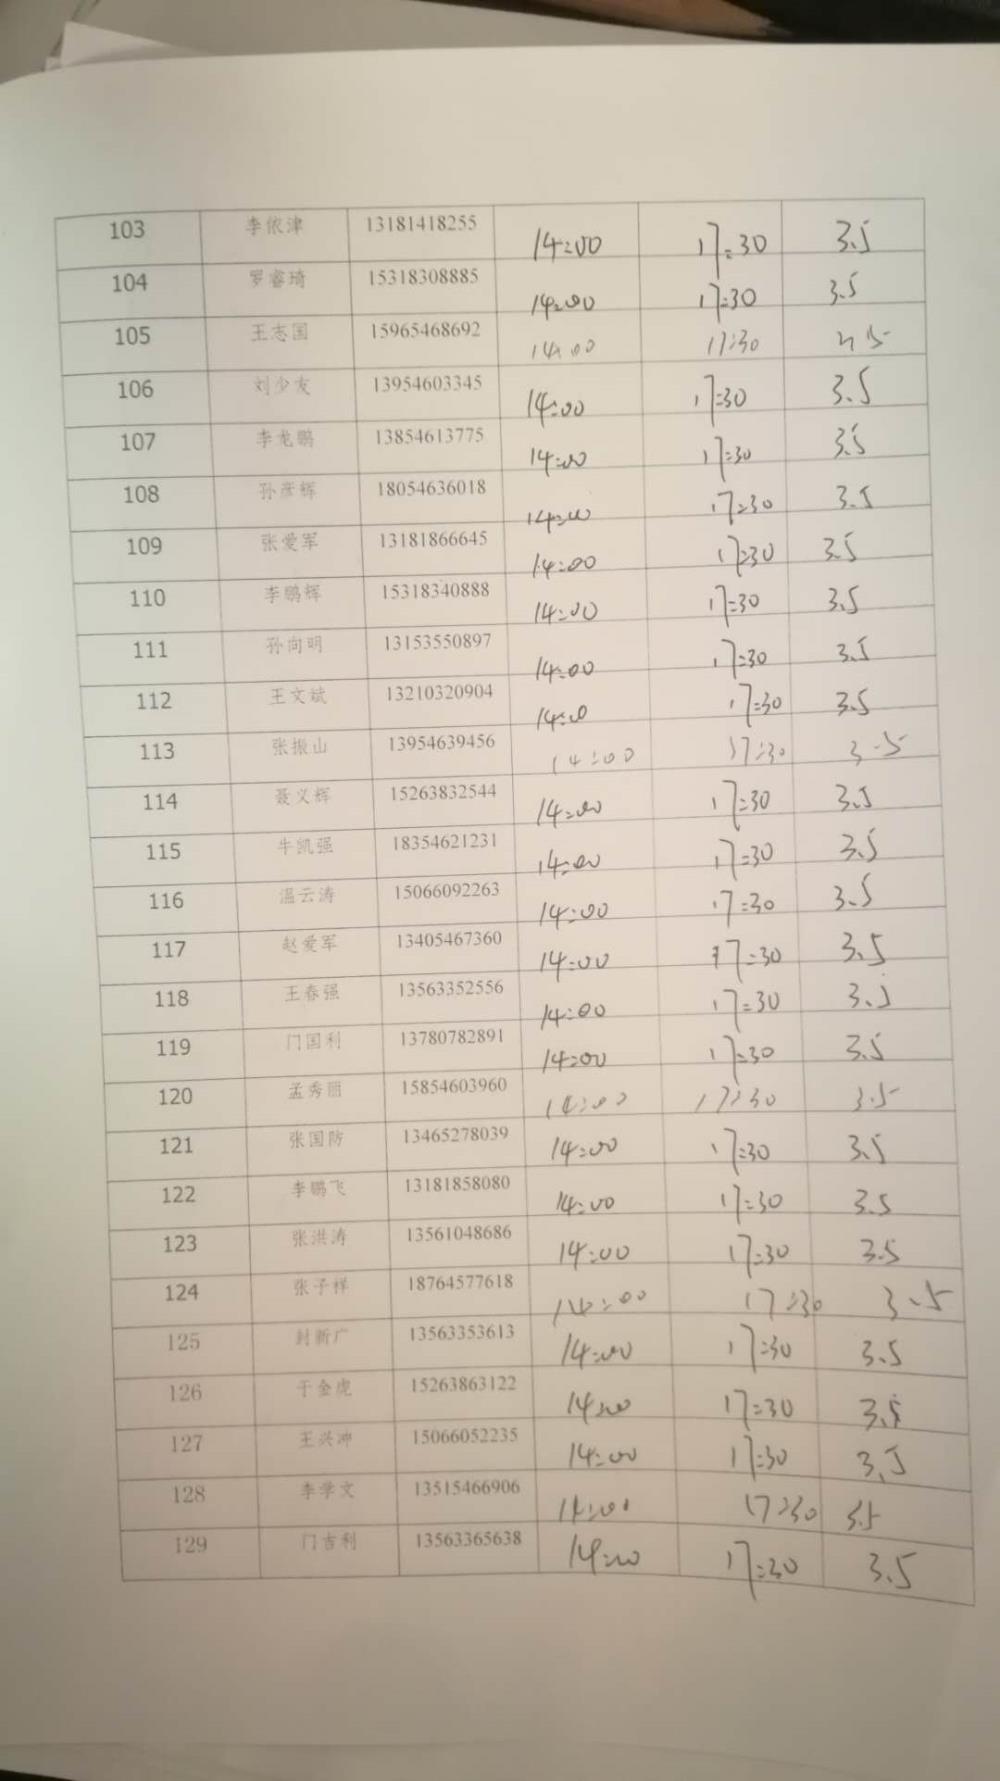 103 李依津 13181418255 14:00 17:30 3.5
104 罗睿琦 15318308885 14:00 17:30 3.5
105 王志国 15965468692 14:00 17:30 3.5
106 刘少友 13954603345 14:00 17:30 3.5
107 李龙鹏 13854613775 14:00 17:30 3.5
108 孙彦辉 18054636018 14:00 17:30 3.5
109 张爱军 13181866645 14:00 17:30 3.5
110 李鹏辉 15318340888 14:00 17:30 3.5
111 孙向明 13153550897 14:00 17:30 3.5
112 王文斌 13210320904 14:00 17:30 3.5
113 张振山 13954639456 14:00 17:30 3.5
114 聂义辉 15263832544 14:00 17:30 3.5
115 牛凯强 18354621231 14:00 17:30 3.5
116 温云涛 15066092263 14:00 17:30 3.5
117 赵爱军 13405467360 14:00 17:30 3.5
118 王春强 13563352556 14:00 17:30 3.5
119 门国利 13780782891 14:00 17:30 3.5
120 孟秀丽 15854603960 14:00 17:30 3.5
121 张国防 13465278039 14:00 17:30 3.5
122 李鹏飞 13181858080 14:00 17:30 3.5
123 张洪涛 13561048686 14:00 17:30 3.5
124 张子祥 18764577618 14:00 17:30 3.5
125 封新广 13563353613 14:00 17:30 3.5
126 于金虎 15263863122 14:00 17:30 3.5
127 王兴冲 15066052235 14:00 17:30 3.5
128 李学文 13515466906 14:00 17:30 3.5
129 门吉利 13563365638 14:00 17:30 3.5